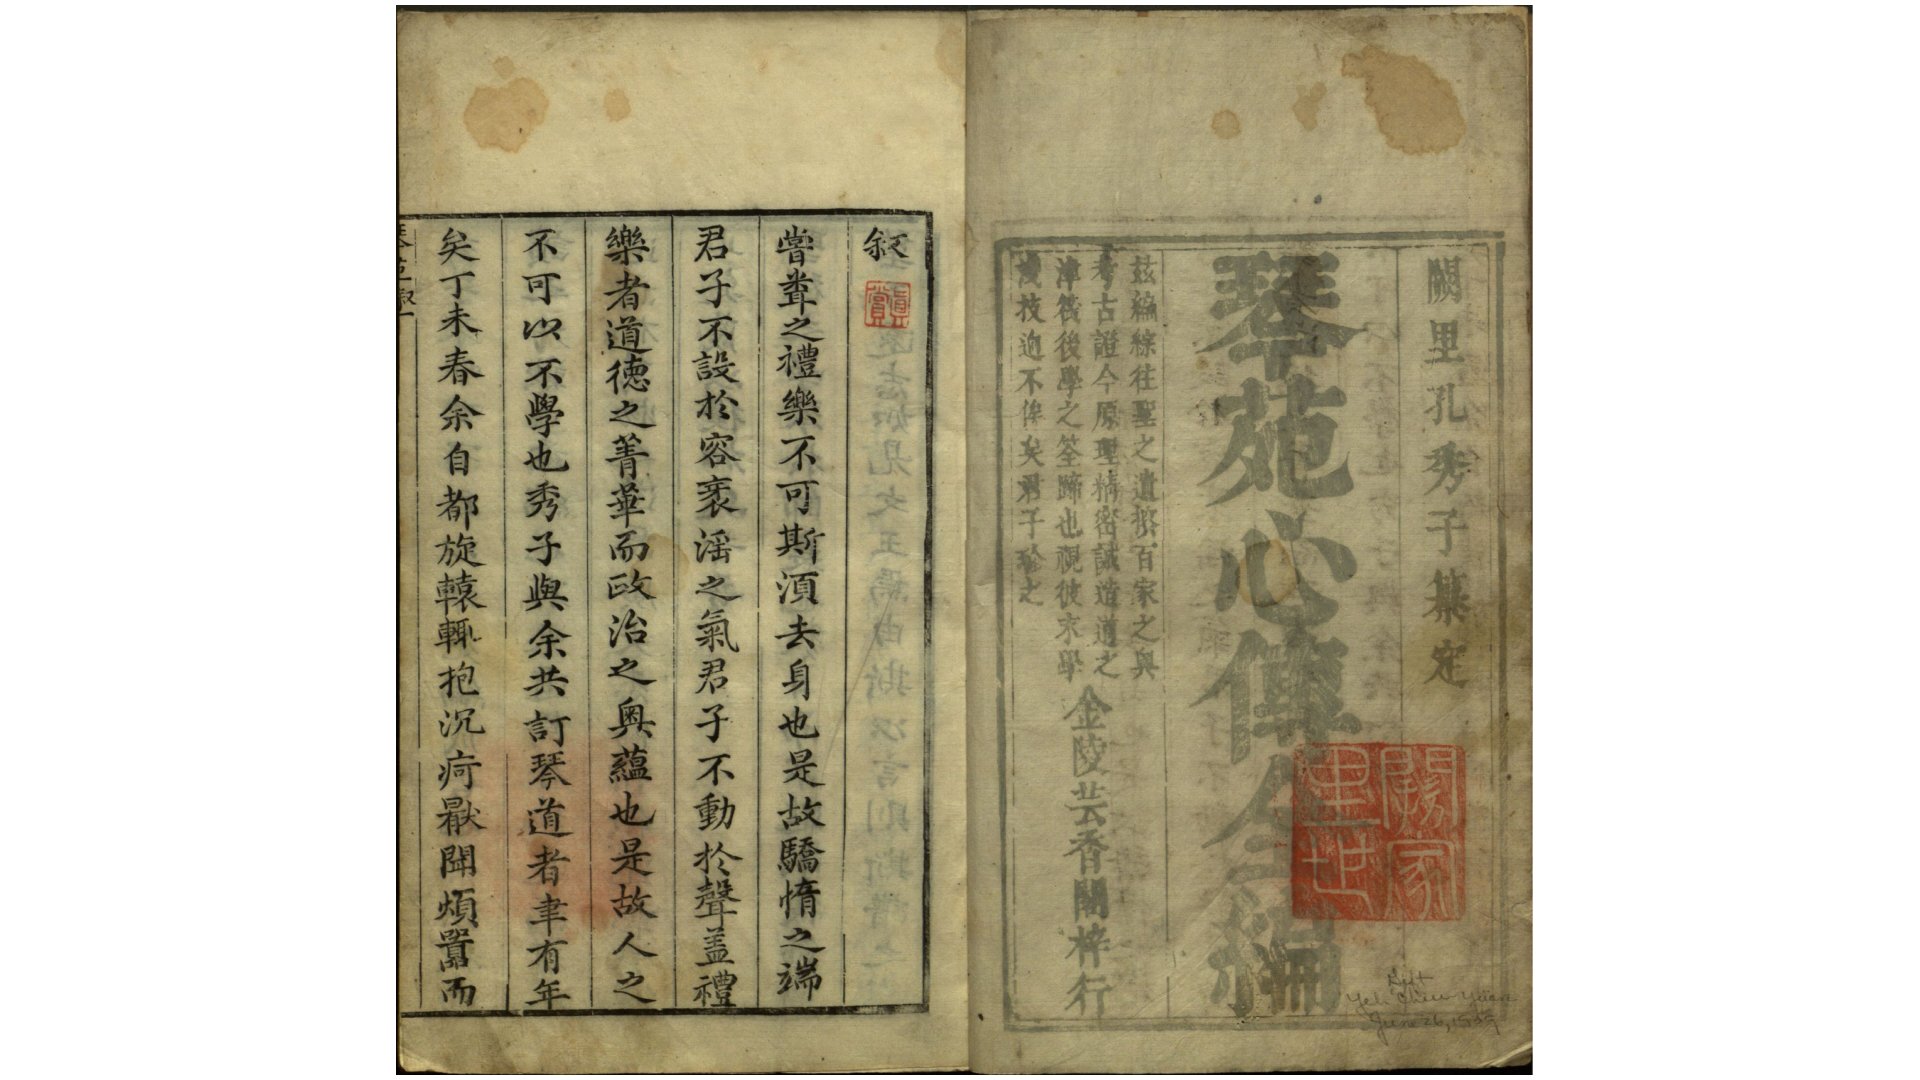 闕里孔秀子纂定
琴苑心傳全編
茲編綜往聖之遺搜百家之奧
考古證今原理精密誠造道之
津筏後學之筌蹄也視彼末學
淺技迥不侔矣君子珍之
金陵芸香閣梓行
闕里世家
Gift
Yeh Chiu-Yuan
June 26, 1939
敘
真賞
嘗聋之禮樂不可斯湏去身也是故驕惰之端
君子不設於容衺滛之氣君子不動於聲盖禮
樂者道德之菁華而政治之奥蘊也是故人之
不可以不學也秀子與余共訂琴道者聿有年
矣丁未春余自都旋轅輒抱沉疴厭聞煩囂而
琴苑敘